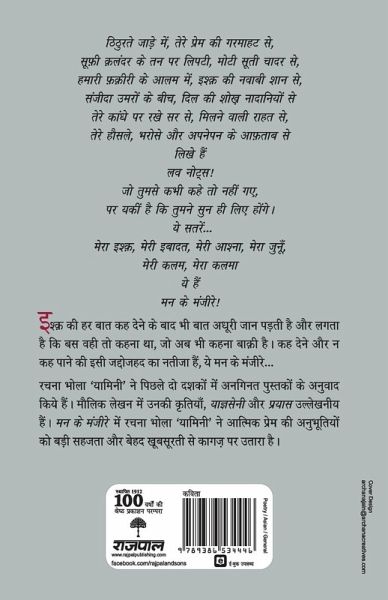 ठिठुरते जाड़े में, तेरे प्रेम की गरमाहट से,
सूफ़ी क़लंदर के तन पर लिपटी, मोटी सूती चादर से,
हमारी फ़क़ीरी के आलम में, इश्क़ की नवाबी शान से,
संजीदा उमरों के बीच, दिल की शोख़ नादानियों से
तेरे कांधे पर रखे सर से, मिलने वाली राहत से,
तेरे हौसले, भरोसे और अपनेपन के आफ़ताब से
लिखे हैं
लव नोट्स!
जो तुमसे कभी कहे तो नहीं गए,
पर यक़ीं है कि तुमने सुन ही लिए होंगे।
ये सतरें...
मेरा इश्क़, मेरी इबादत, मेरी आश्ना, मेरा जुनूँ,
मेरी कलम, मेरा कलमा
ये हैं
मन के मंजीरे!
इश्क़ की हर बात कह देने के बाद भी बात अधूरी जान पड़ती है और लगता
है कि बस वही तो कहना था, जो अब भी कहना बाक़ी है। कह देने और न
कह पाने की इसी जद्दोजहद का नतीजा हैं, ये मन के मंजीरे...
रचना भोला 'यामिनी' ने पिछले दो दशकों में अनगिनत पुस्तकों के अनुवाद
किये हैं। मौलिक लेखन में उनकी कृतियाँ, याज्ञसेनी और प्रयास उल्लेखनीय
हैं। मन के मंजीरे में रचना भोला 'यामिनी' ने आत्मिक प्रेम की अनुभूतियों
को बड़ी सहजता और बेहद खूबसूरती से काग़ज़ पर उतारा है।
स्थापित 1912
100 वर्षों की
श्रेष्ठ प्रकाशन परम्परा
राजपाल
www.rajpalpublishing.com
facebook.com/rajpalandsons
कविता
9 789386 534446
ई-बुक उपलब्ध
Poetry / Asian / General
Cover Design
archanajain@archanacreatives.com